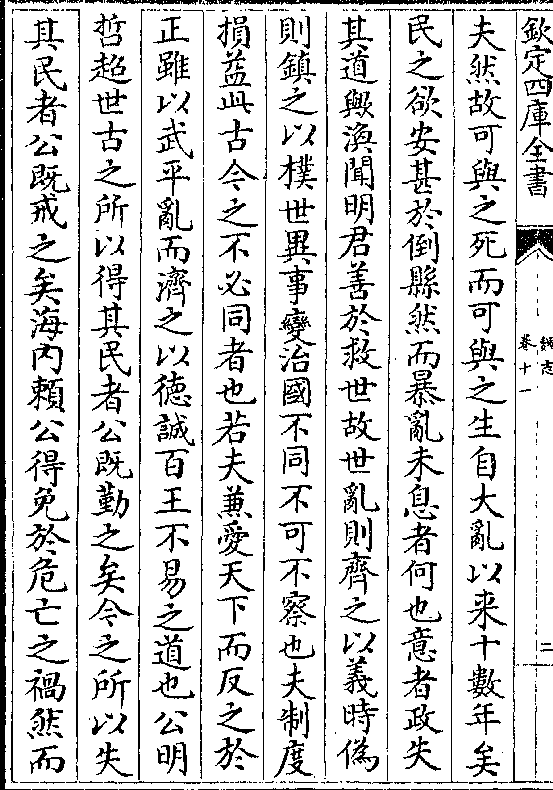 欽定四庫全書
魏志
卷十一
二
夫然故可與之死而可與之生自大亂以来十數年矣
民之欲安甚於倒縣然而暴亂未息者何也意者政失
其道歟渙聞明君善於救世故世亂則齊之以義時偽
則鎮之以樸世異事變治國不同不可不察也夫制度
損益此古今之不必同者也若夫兼愛天下而反之於
正雖以武平亂而濟之以德誠百王不易之道也公明
哲超世古之所以得其民者公既勤之矣今之所以失
其民者公既戒之矣海内賴公得免於危亡之禍然而